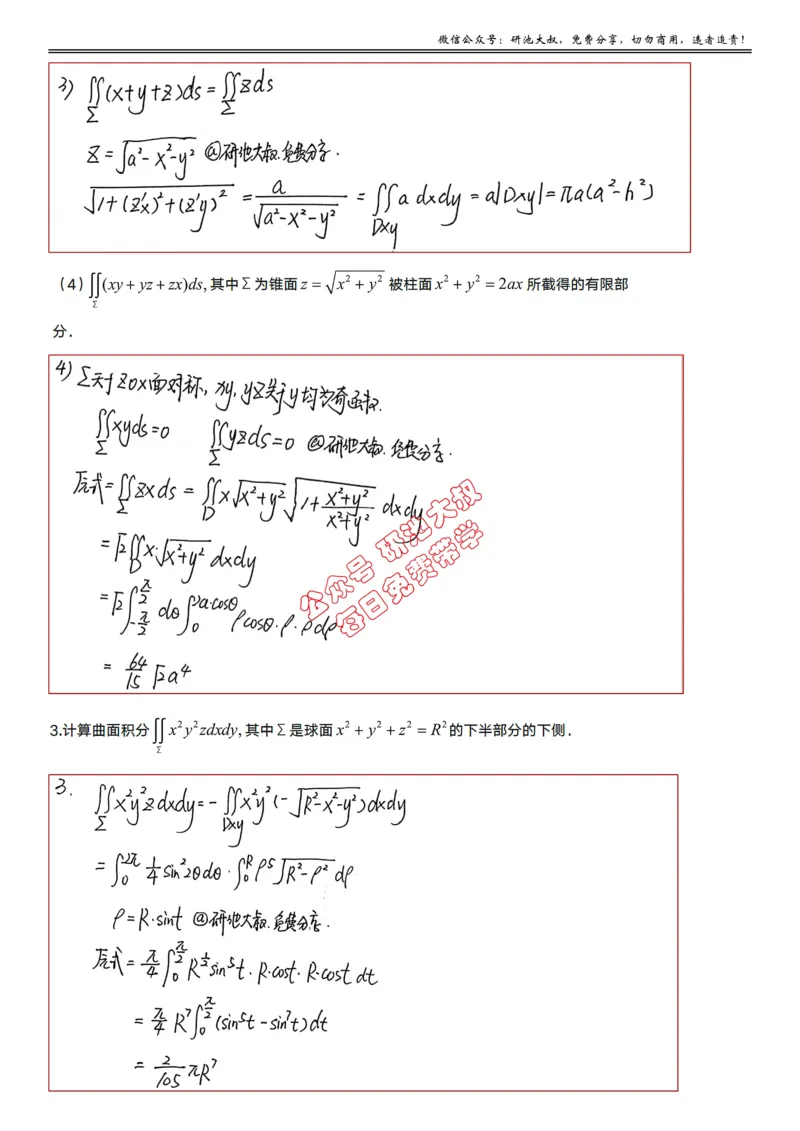 微信公众号：研池大叔，免费分享，切勿商用，违者追责！
3) ∬_Σ (x+y+z)ds = ∬_Σ zds
z = √(a²-x²-y²) @研池大叔.免费分享.
√(1+(z'x)²+(z'y)²) = a/√(a²-x²-y²) = ∬_Dxy a dxdy = a|Dxy| = πa(a²-h²)
(4) ∬_Σ (xy + yz + zx)ds, 其中Σ为锥面 z = √(x² + y²) 被柱面 x² + y² = 2ax 所截得的有限部
分.
4) Σ关于zox面对称, xy, yz关于y均为奇函数.
∬_Σ xyds=0 ∬_Σ yzds=0 @研池大叔.免费分享.
原式 = ∬_Σ zx ds = ∬_D x√(x²+y²) √(1+(x²+y²)/(x²+y²)) dxdy
= √2 ∬_D x·√(x²+y²) dxdy
= √2 ∫_{-π/2}^{π/2} dθ ∫_0^{2a·cosθ} ρcosθ·ρ·ρdρ
= 64/15 √2a⁴
公众号 研池大叔
每日免费带学
3.计算曲面积分 ∬_Σ x²y²zdxdy, 其中Σ是球面 x² + y² + z² = R² 的下半部分的下侧.
3. ∬_Σ x²y²z dxdy = -∬_Dxy x²y²(-√(R²-x²-y²))dxdy
= ∫_0^{2π} 1/4 sin²2θdθ · ∫_0^R ρ⁵√(R²-ρ²) dρ
ρ=R·sint @研池大叔.免费分享.
原式 = π/4 ∫_0^{π/2} R⁵sin⁵t·R·cost·R·cost dt
= π/4 R⁷ ∫_0^{π/2} (sin⁵t - sin⁷t)dt
= 2/105 πR⁷